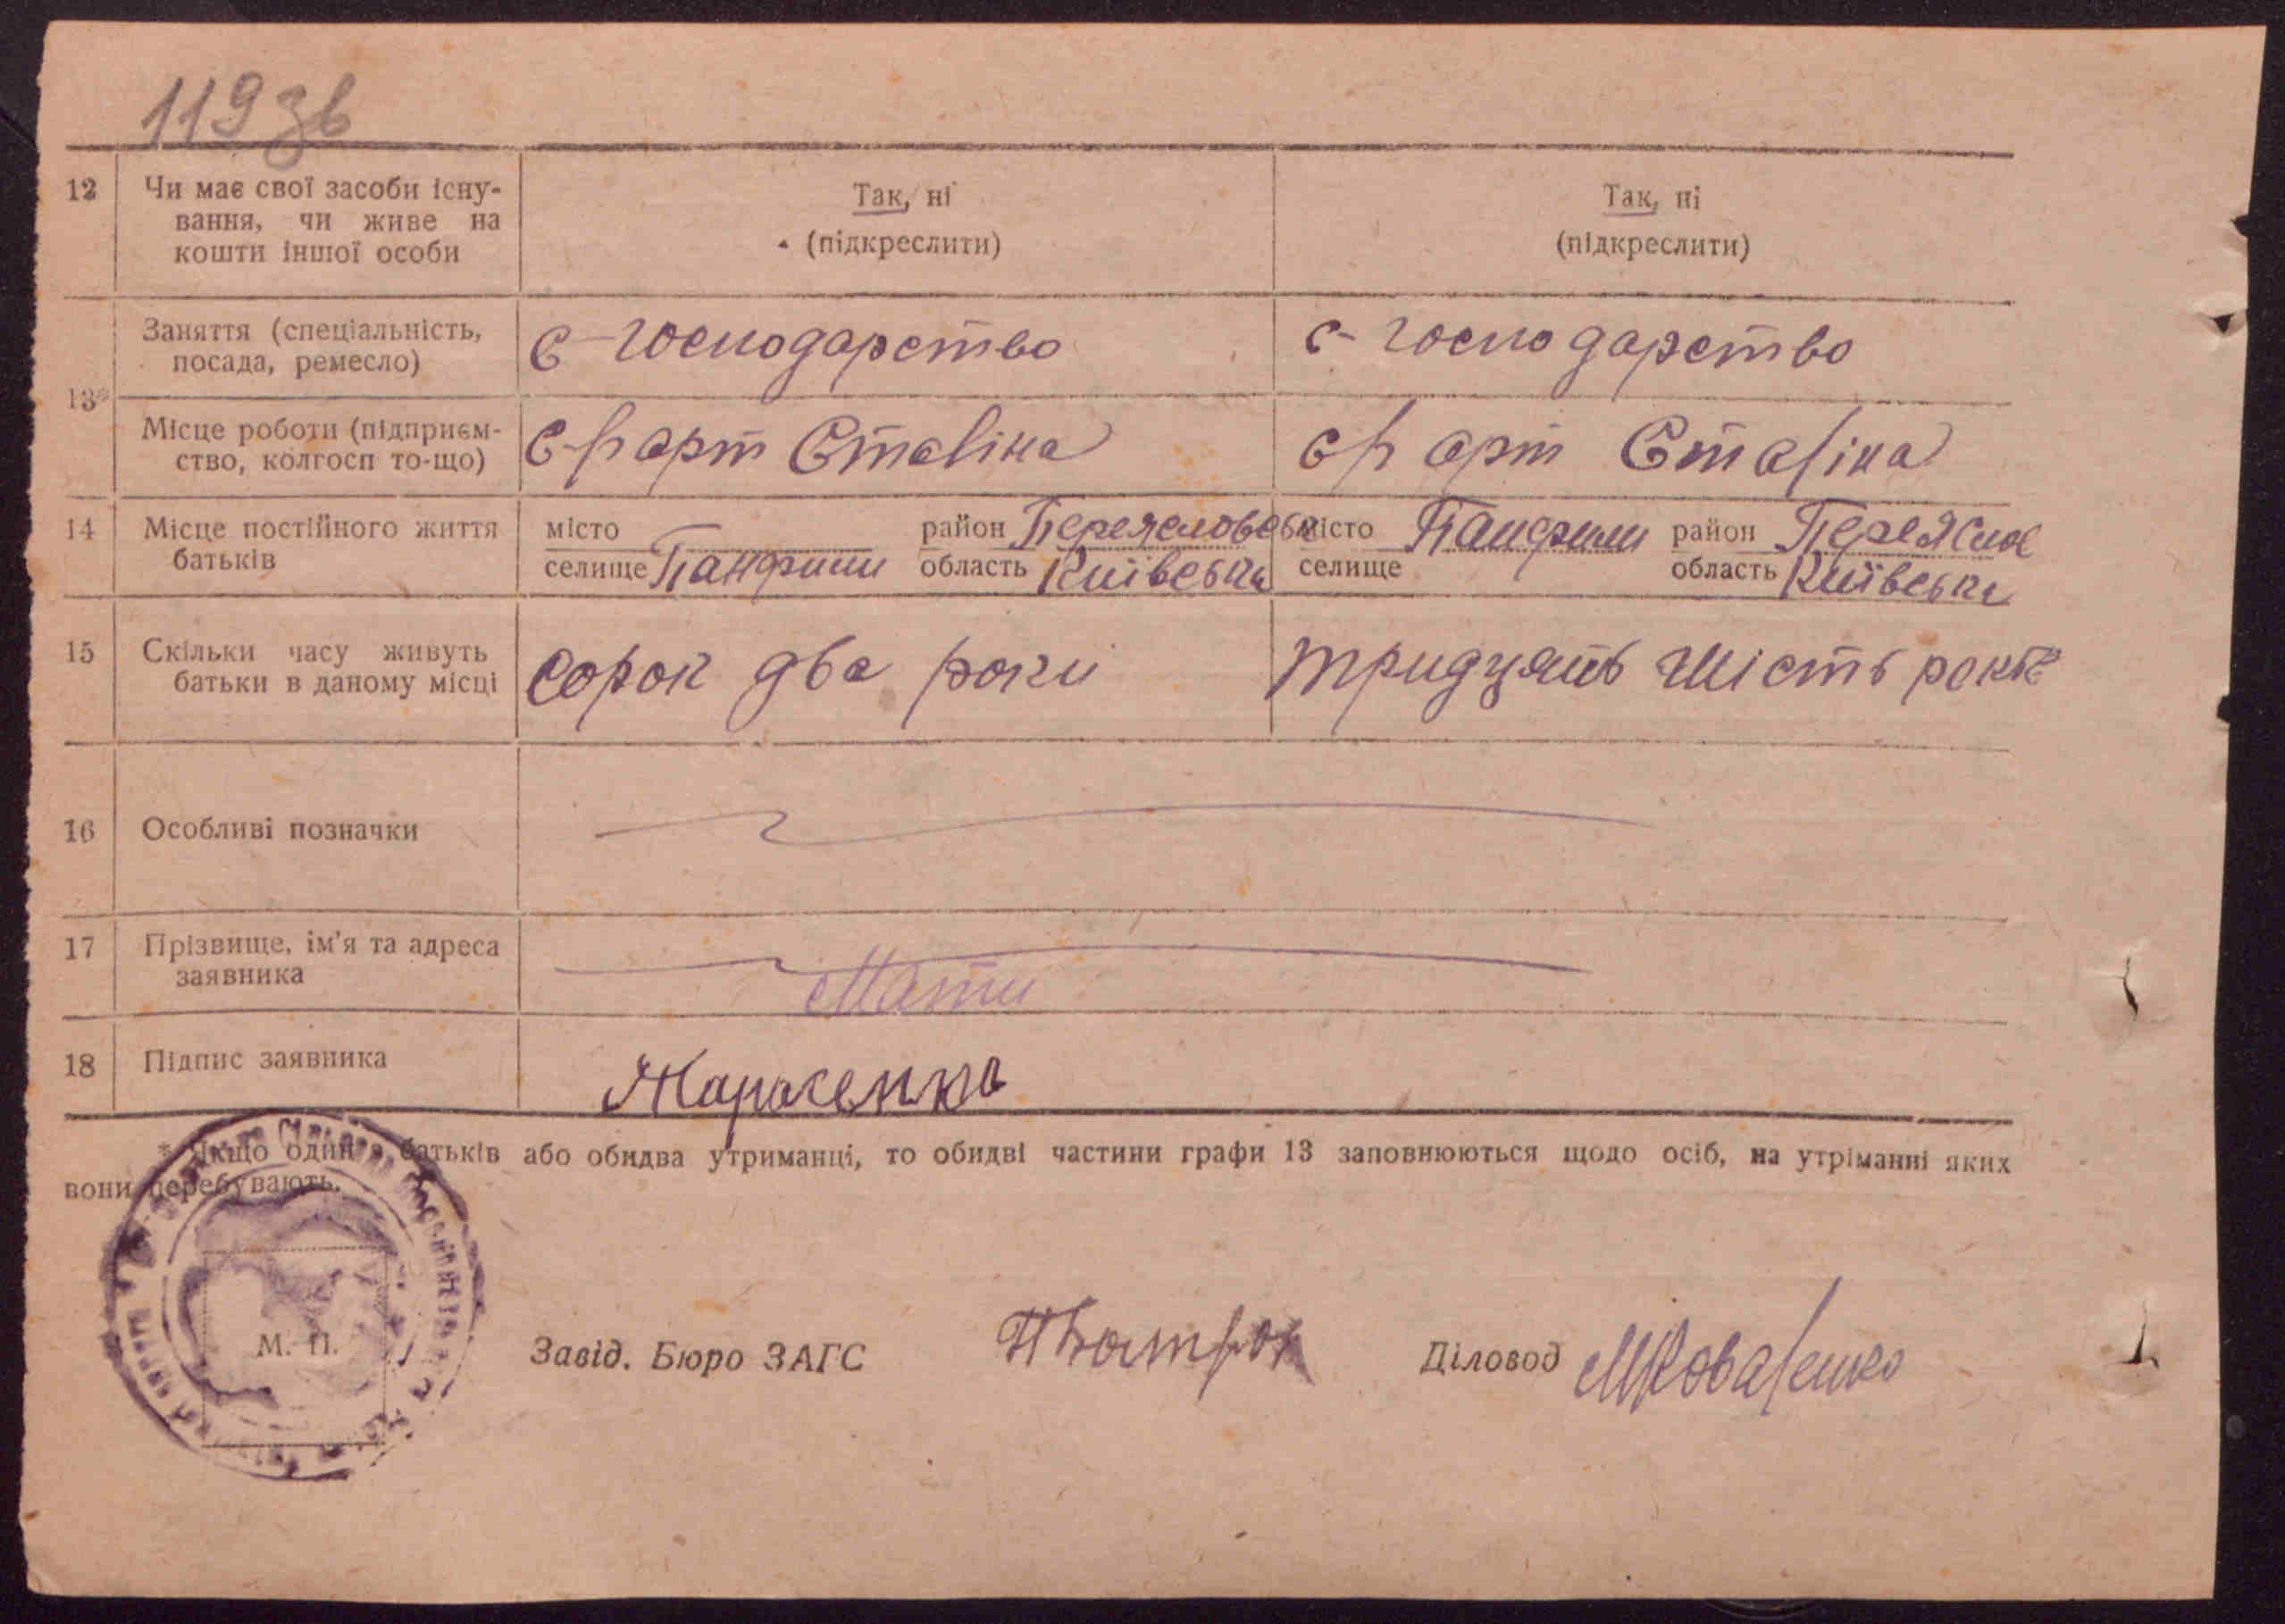 119 зв
12 Чи має свої засоби існу- Так, ні Так, ні
вання, чи живе на (підкреслити) (підкреслити)
кошти іншої особи
Заняття (спеціальність, с-господарство с-господарство
посада, ремесло)
13*
Місце роботи (підприєм- с-г арт Сталіна сг арт Сталіна
ство, колгосп то-що)
14 Місце постійного життя місто район Переясловськ місто Панфили район Переяслов
батьків селище Панфили область Київська селище область Київська
15 Скільки часу живуть сорок два роки тридцять шість років
батьки в даному місці
16 Особливі позначки
17 Прізвище, ім'я та адреса
заявника Мати
18 Підпис заявника
* Якщо один з батьків або обидва утриманці, то обидві частини графи 13 заповнюються щодо осіб, на утріманні яких
вони перебувають.
М. П. Завід. Бюро ЗАГС Діловод МКоваленко